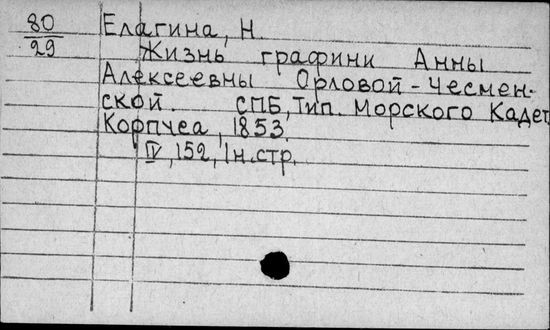 80
29
Елагина, Н.
Жизнь графини Анны
Алексеевны Орловой-Чесмен-
ской. СПБ, Тип. Морского Кадет.
Корпуса, 1853.
IV, 152, 1н.стр.